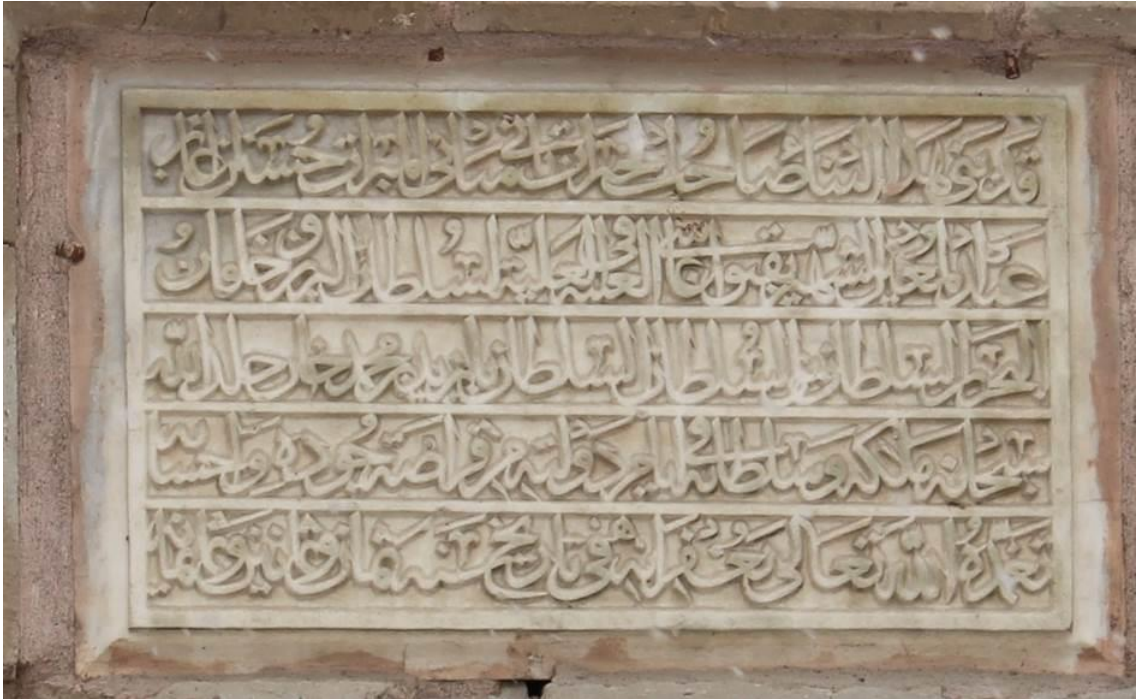 قد بنى هذا البناء صاحب الخيرات في مباني المبرات حسين بن
عبد المعين الشهير بقبو في العتبة العلية السلطان البر وخاقان
البحر السلطان بن السلطان السلطان بايزيد بن محمد خان خلد الله
سبحانه ملكه وسلطانه في ايام دولته من جوده واحسانه
تغمده الله تعالى بغفرانه في تاريخ سنة ثمان وثمانين وثمانمائة